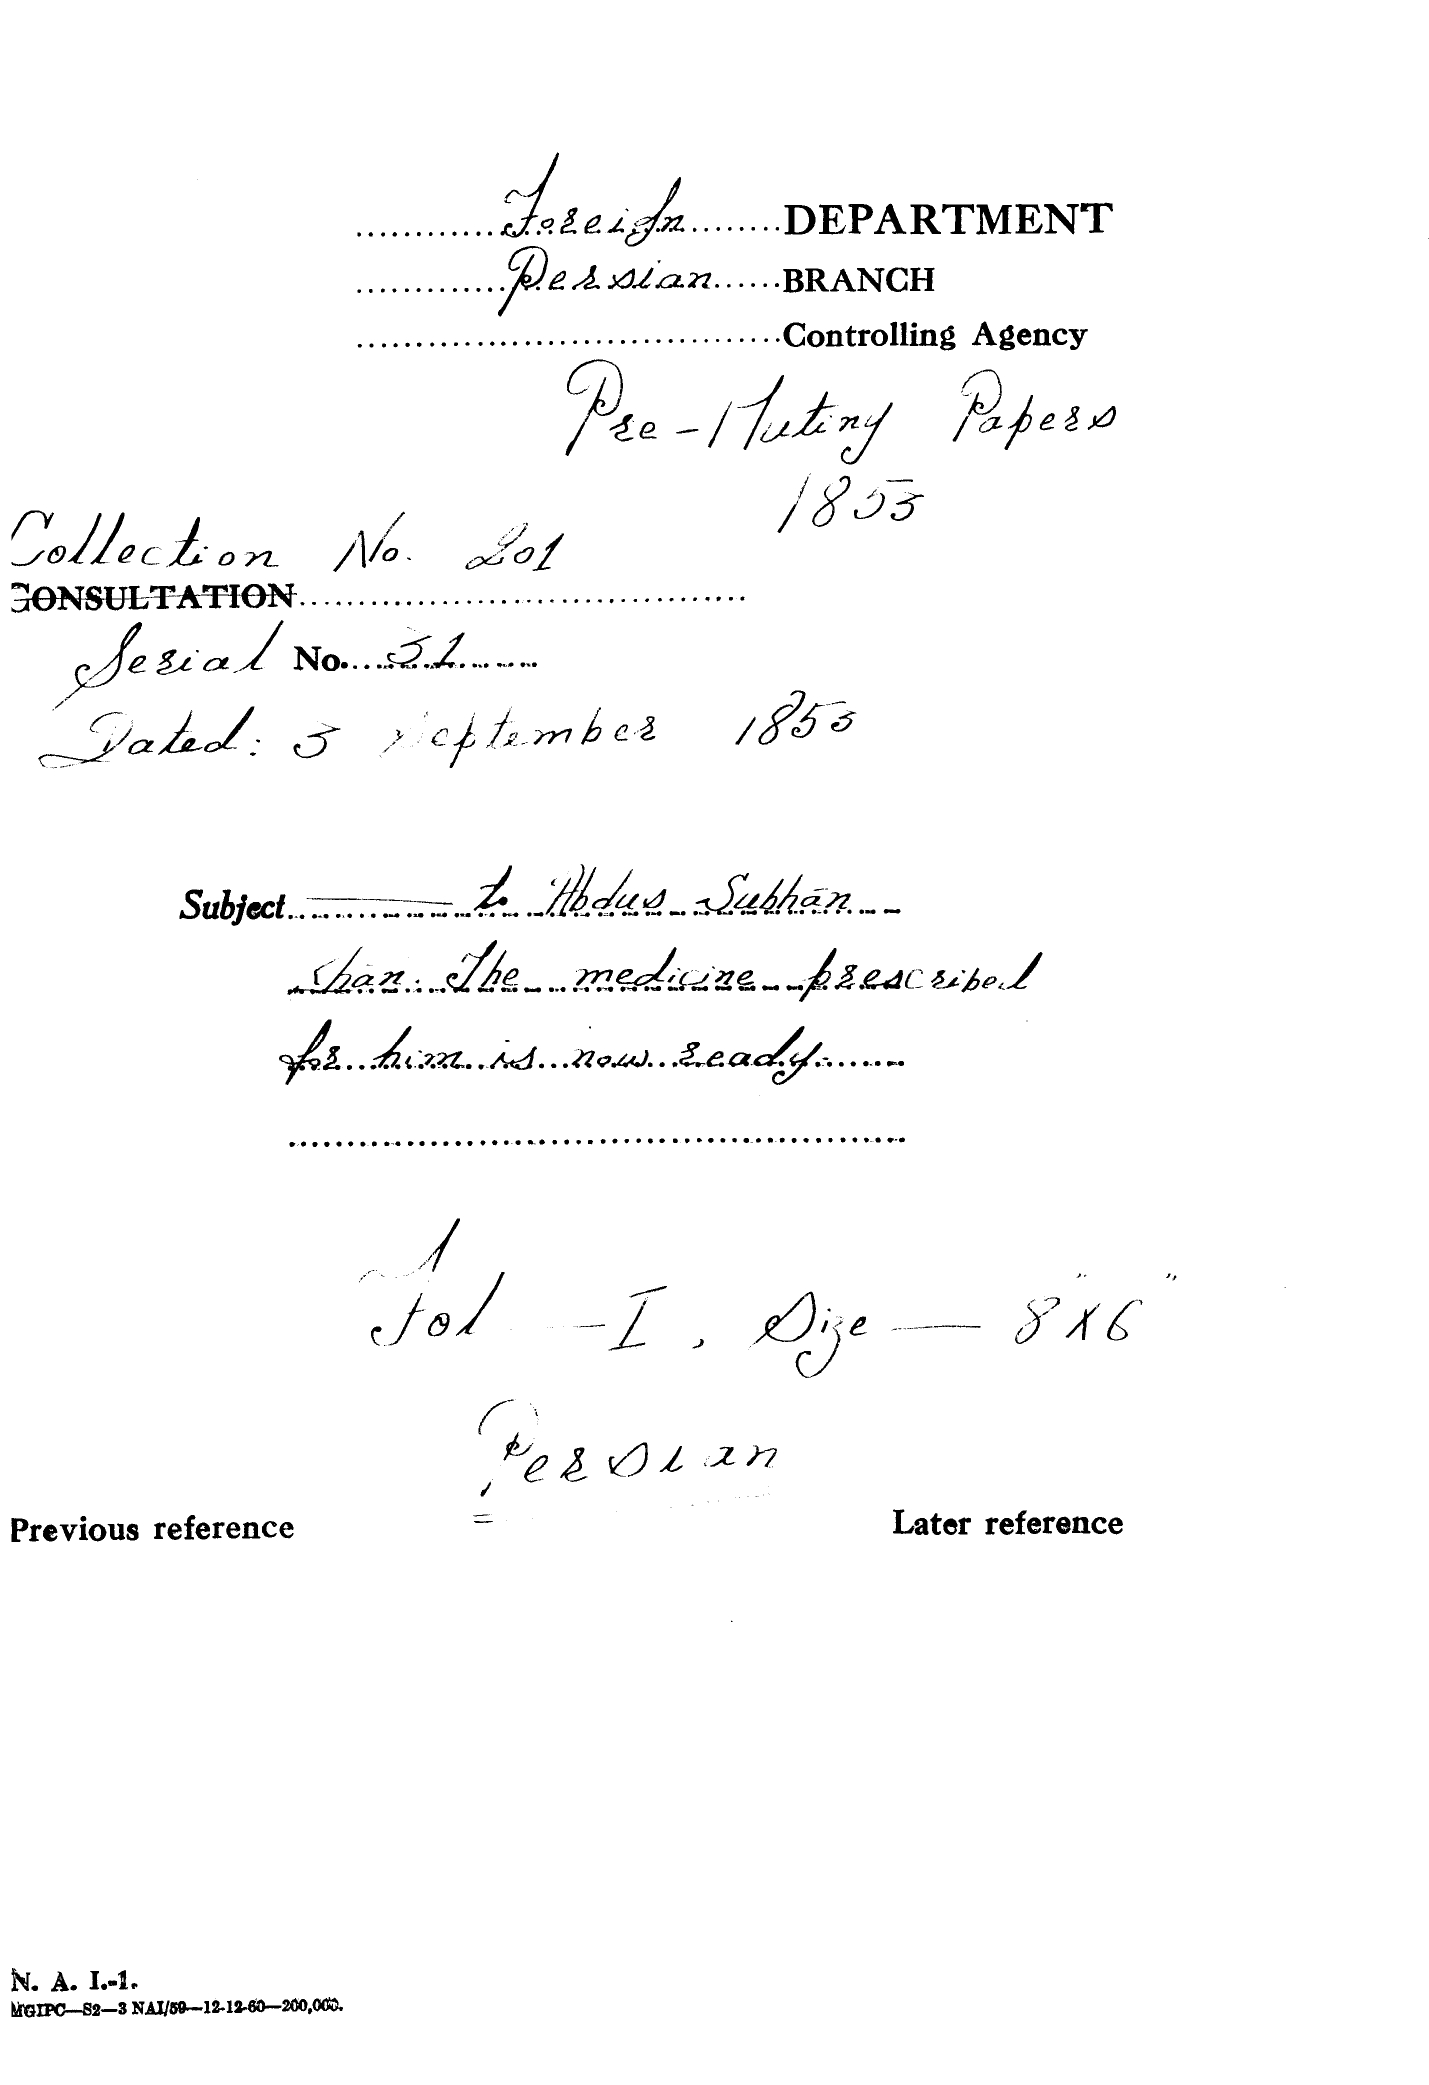 Foreign DEPARTMENT
Persian BRANCH
Controlling Agency
Pre-Mutiny Papers
1853
Collection No. 201
CONSULTATION
Serial No. 31
Dated: 3 September 1853
Subject — to Abdus Subhān
Khān. The medicine prescribed
for him is now ready.
Fol — I, Size — 8"X6"
Persian
Previous reference Later reference
N. A. I.-1.
MGIPC—S2—3 NAI/59—12-12-60—200,000.